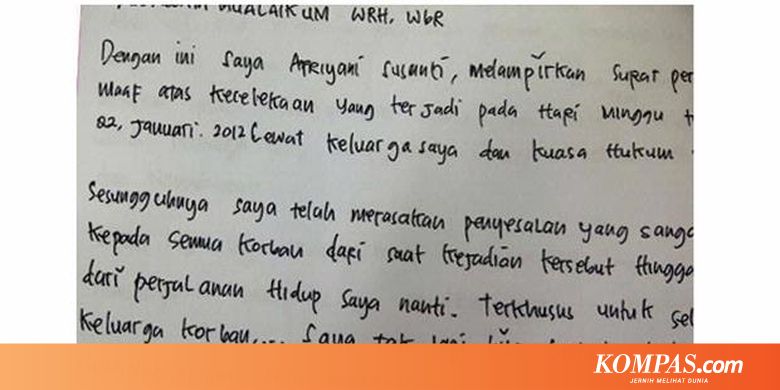 MUALAIKUM WRH, WbR
Dengan ini saya Afriyani Susanti, melampirkan surat per
Maaf atas kecelekaan yang terjadi pada Hari Minggu t
22, Januari. 2012 Lewat keluarga saya dan kuasa Hukum
Sesungguhnya saya telah merasakan penyesalan yang sanga
kepada semua korban dari saat kejadian tersebut Hingga
dari perjalanan Hidup saya nanti. Terkhusus untuk sel
keluarga korban,... Saya tak
KOMPAS.com
JERNIH MELIHAT DUNIA